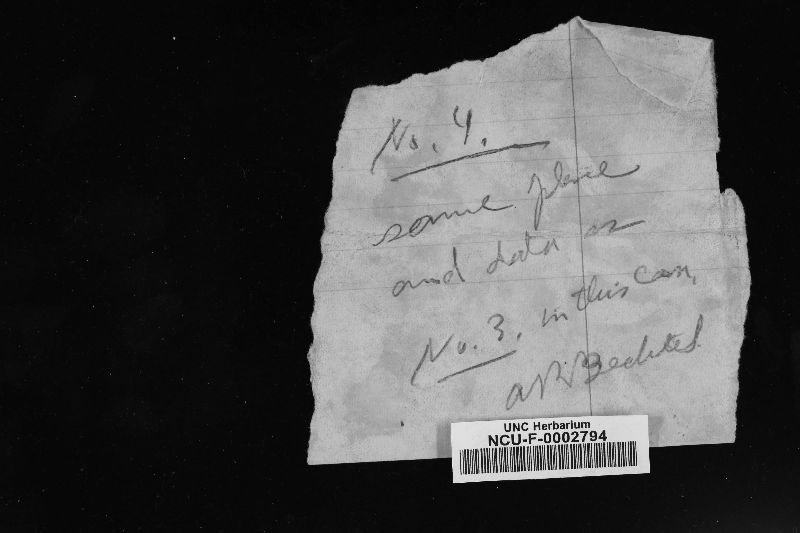 No. 4.
same place
and data as
No. 3. in this can,
UNC Herbarium
NCU-F-0002794